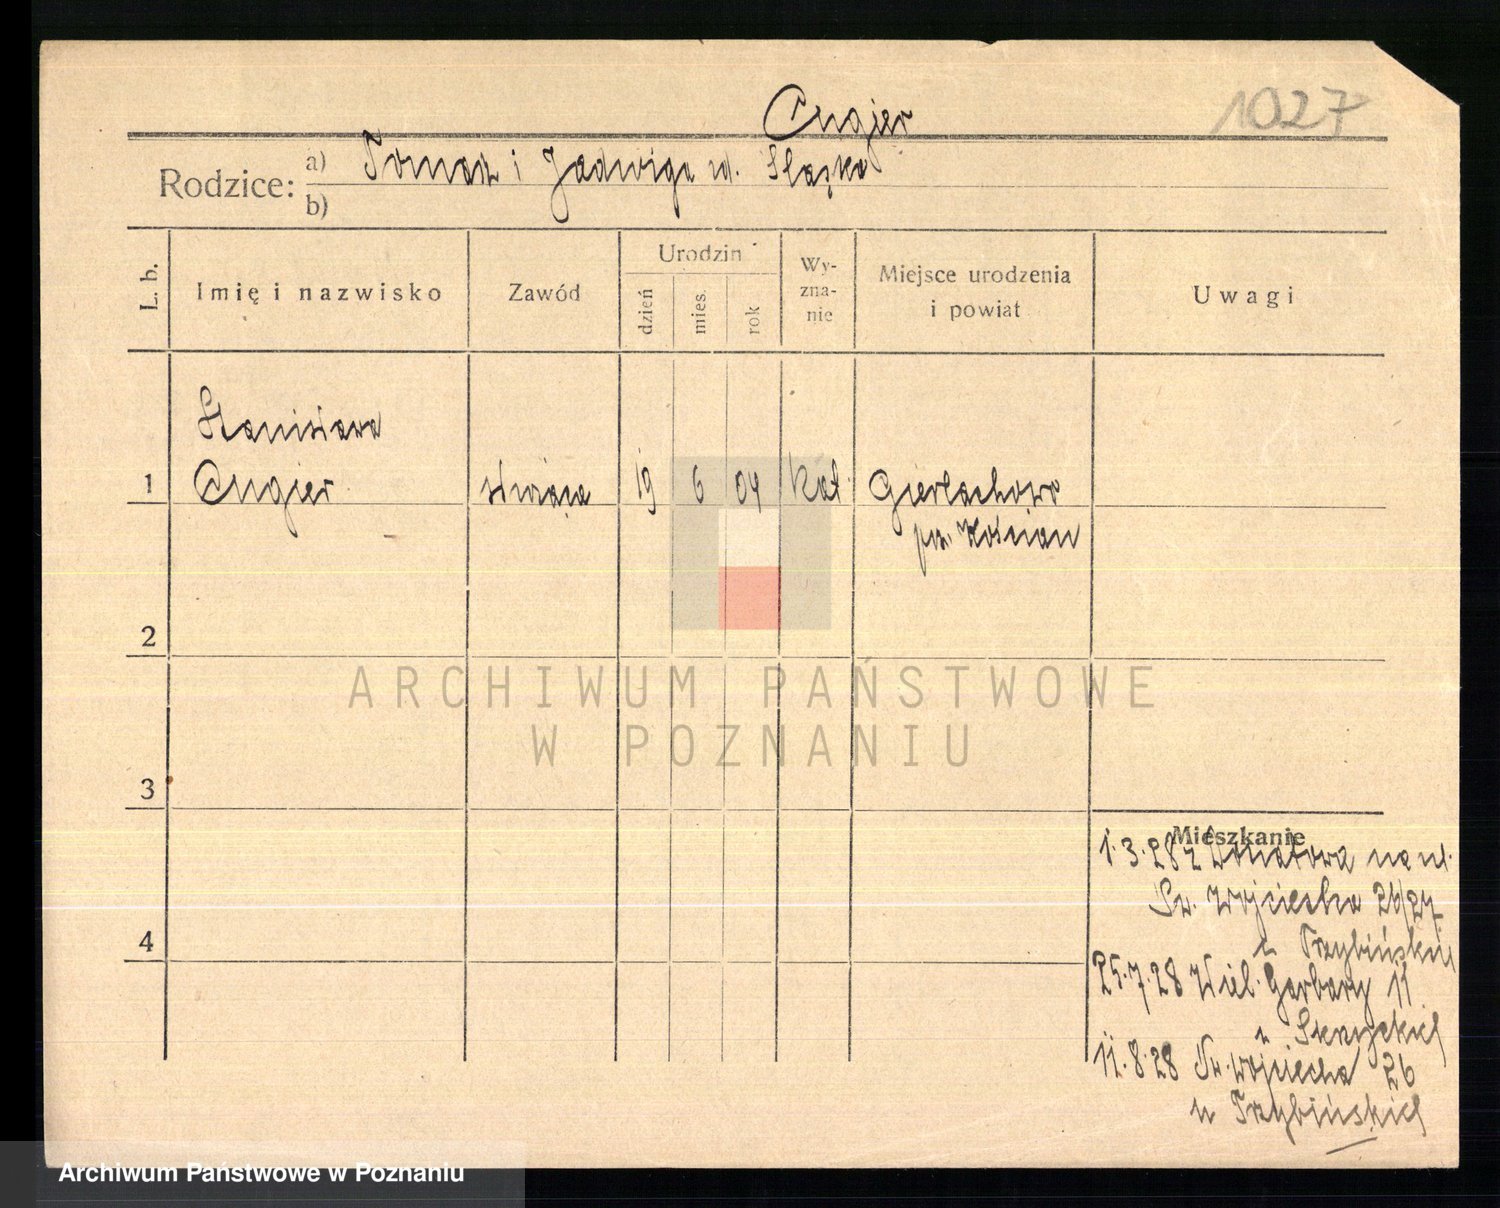 Cugier
1027
Rodzice:
a) Tomasz i Jadwiga ur. Sląska
b)
L. b.
Imię i nazwisko
Zawód
Urodzin
dzień
mies.
rok
Wy-
zna-
nie
Miejsce urodzenia
i powiat
Uwagi
Stanisława
1 Cugier służąca 19 6 04 kat. Gierłachowo
pow. Kościan
2
3
4
Mieszkanie
1.3.28 z na ul.
Św. Wojciecha 26/27
u Trzybińskich
25.7.28 Wiel. Garbary 11
u
11.8.28 Św. Wojciecha 26
u Trzybińskich
ARCHIWUM PAŃSTWOWE
W POZNANIU
Archiwum Państwowe w Poznaniu